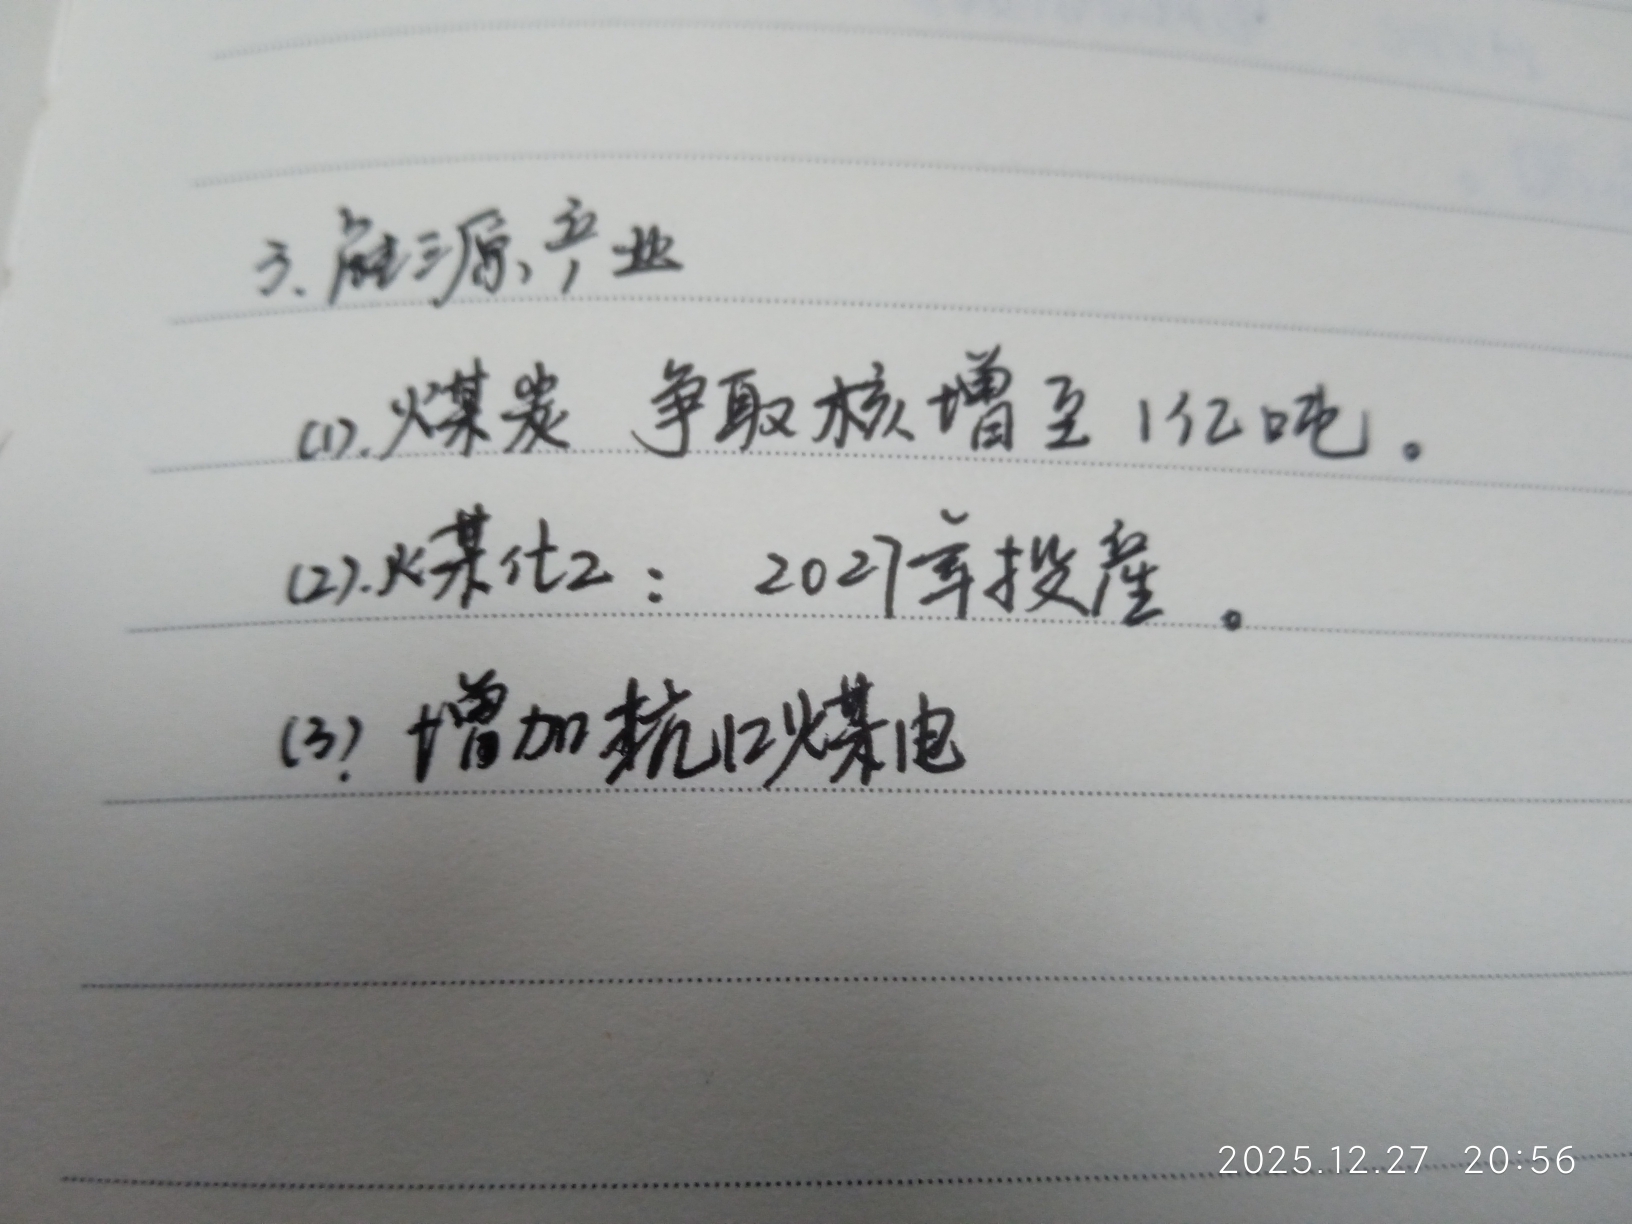 3.能源产业
(1).煤炭 争取核增至1亿吨。
(2).煤化工: 2027年投産。
(3).增加坑口煤电
2025.12.27 20:56